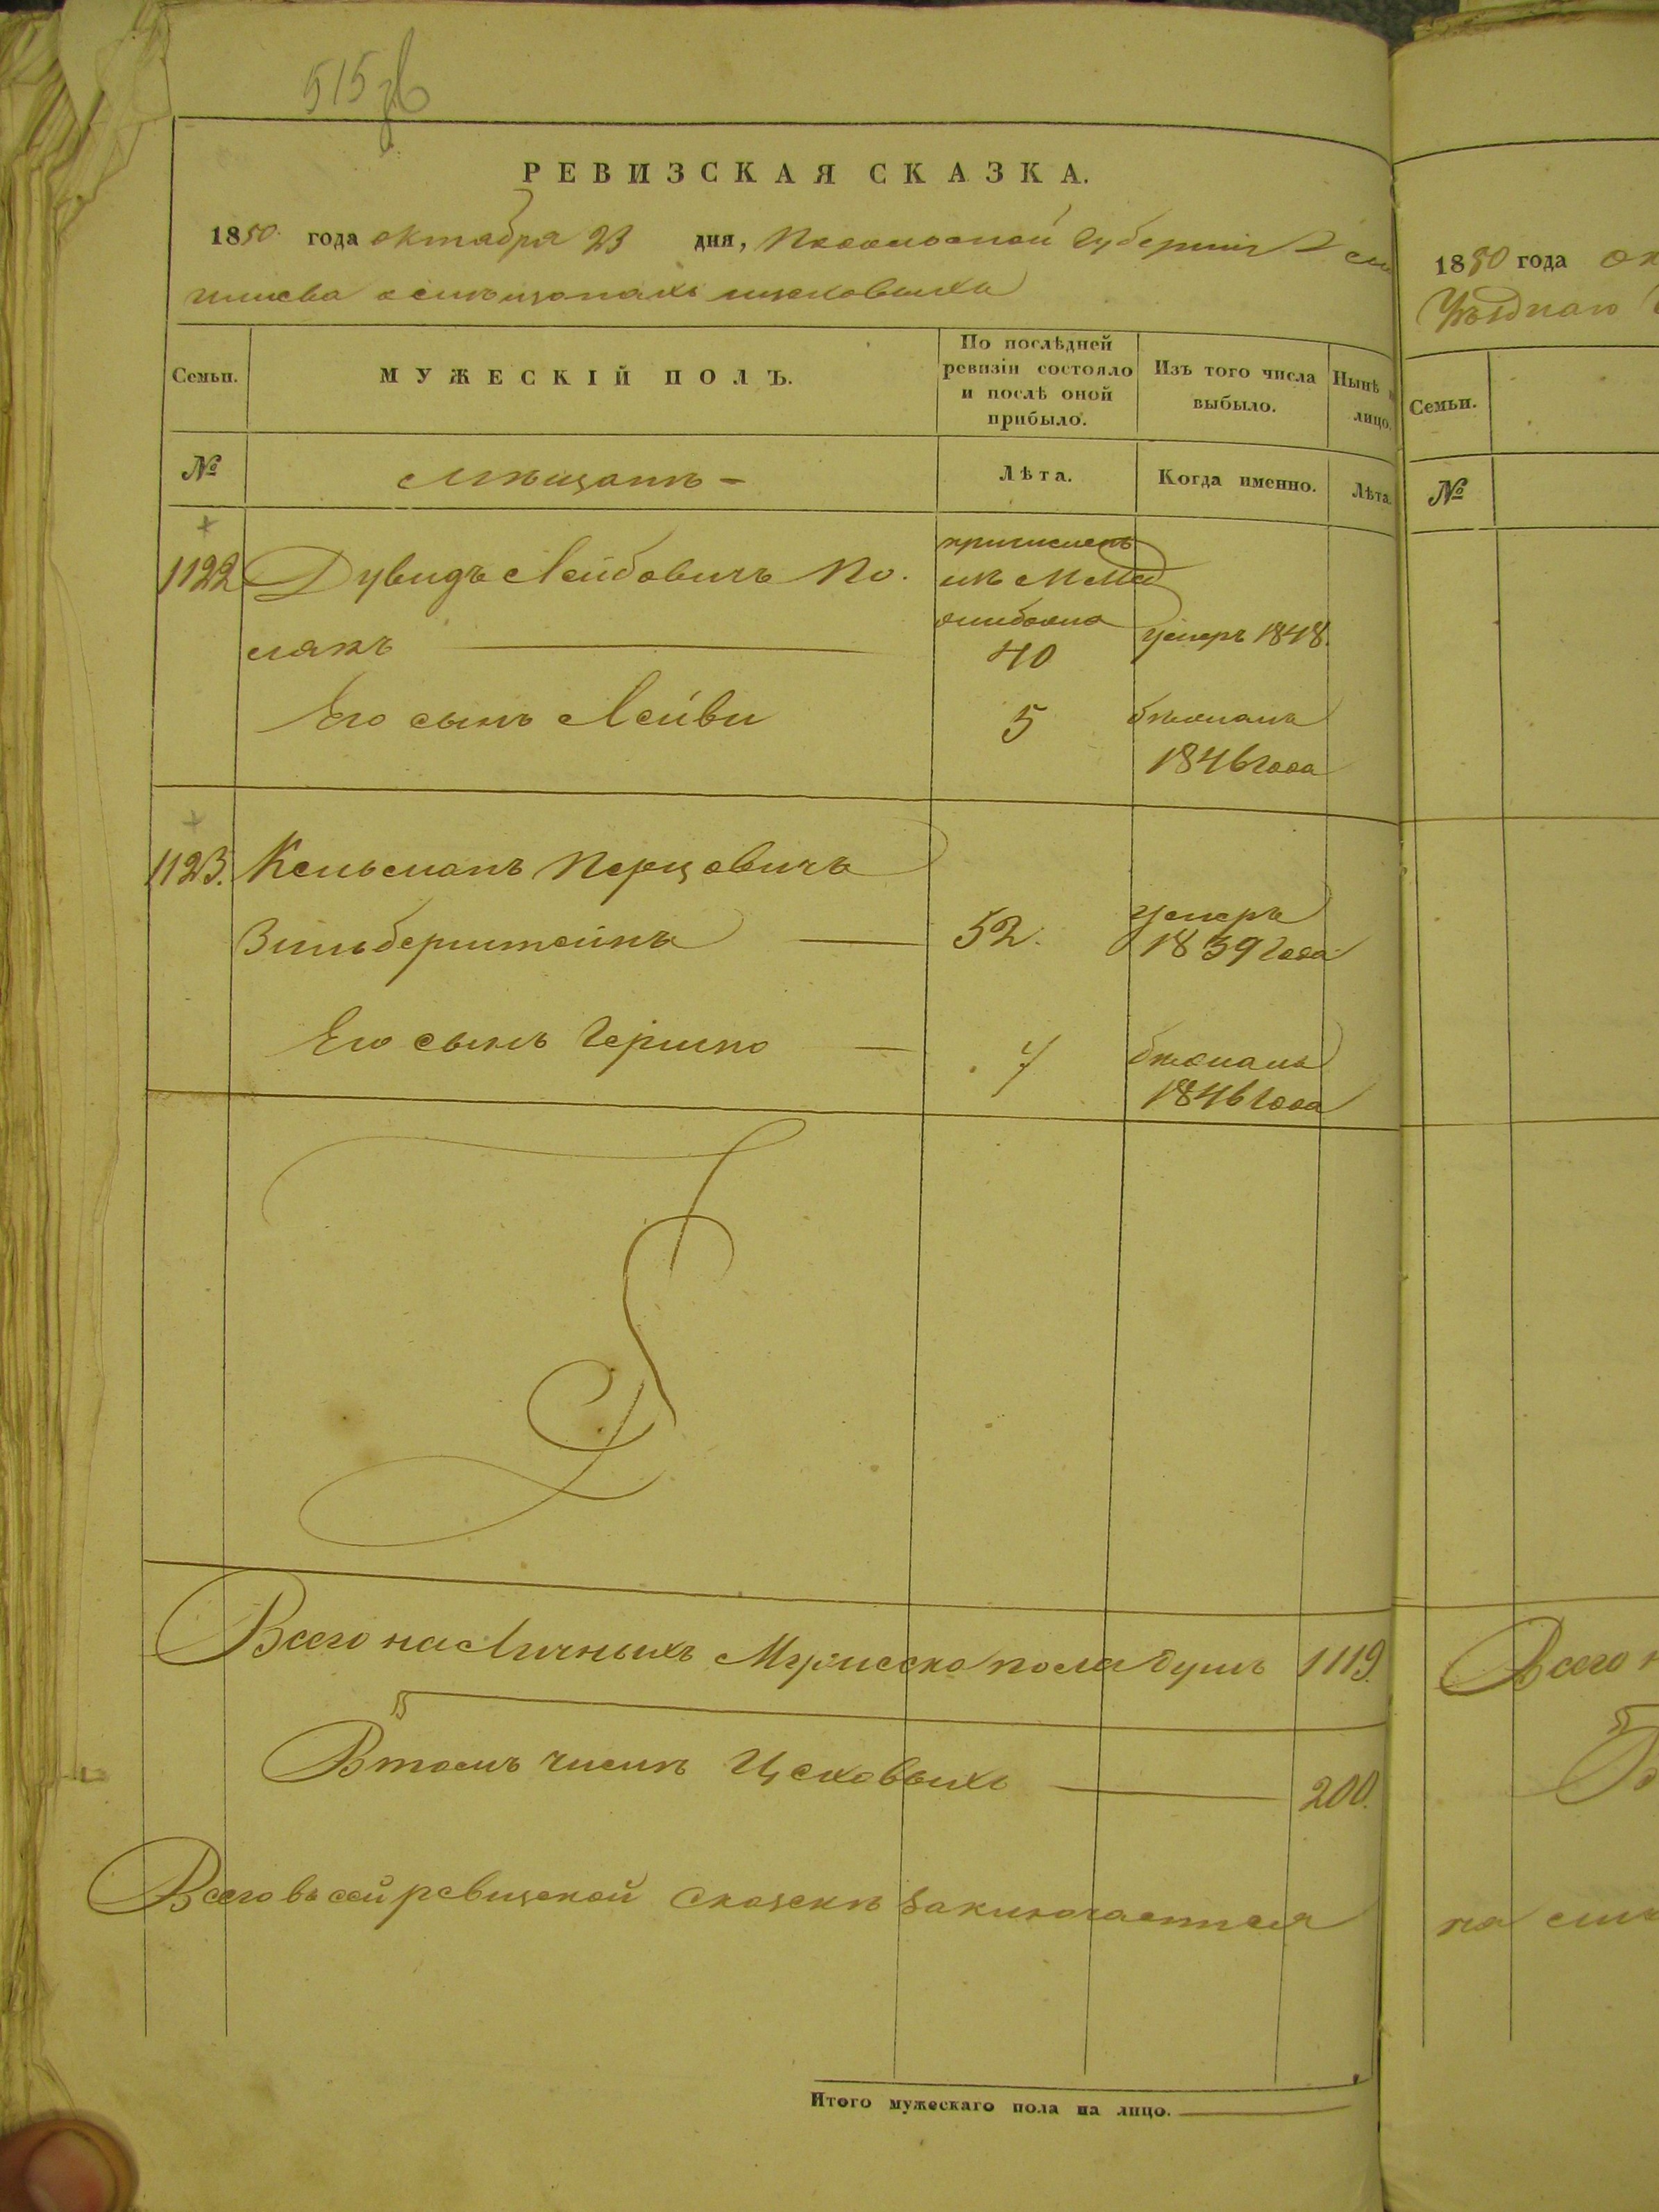 515
РЕВИЗСКАЯ СКАЗКА.
1850 года октября 23 дня, Подольской Губерніи
о мѣщанахъ цеховыхъ
Семьи.
МУЖЕСКІЙ ПОЛЪ.
По послѣдней
ревизіи состояло
и послѣ оной
прибыло.
Изъ того числа
выбыло.
Нынѣ н
лицо.
№
Мѣщанъ -
Лѣта.
Когда именно.
Лѣта.
1122
Дувидъ Лейбовичъ По.
лякъ
ошибочно
40
умеръ 1848.
Его сынъ Лейви
5
бѣжалъ
1846 года
1123.
Кельманъ Перцовичъ
Зильберштейнъ
52.
умеръ
1839 года
Его сынъ Гершко
7
бѣжалъ
1846 года
Всего на Личныхъ Мужеско пола душъ 1119.
Втомъ числѣ Цеховыхъ 200.
Всего въ сей ревизской Сказскѣ Заключается
Итого мужескаго пола на лицо.
1850 года ок
Уѣзднаго
Семьи.
№
Всего н